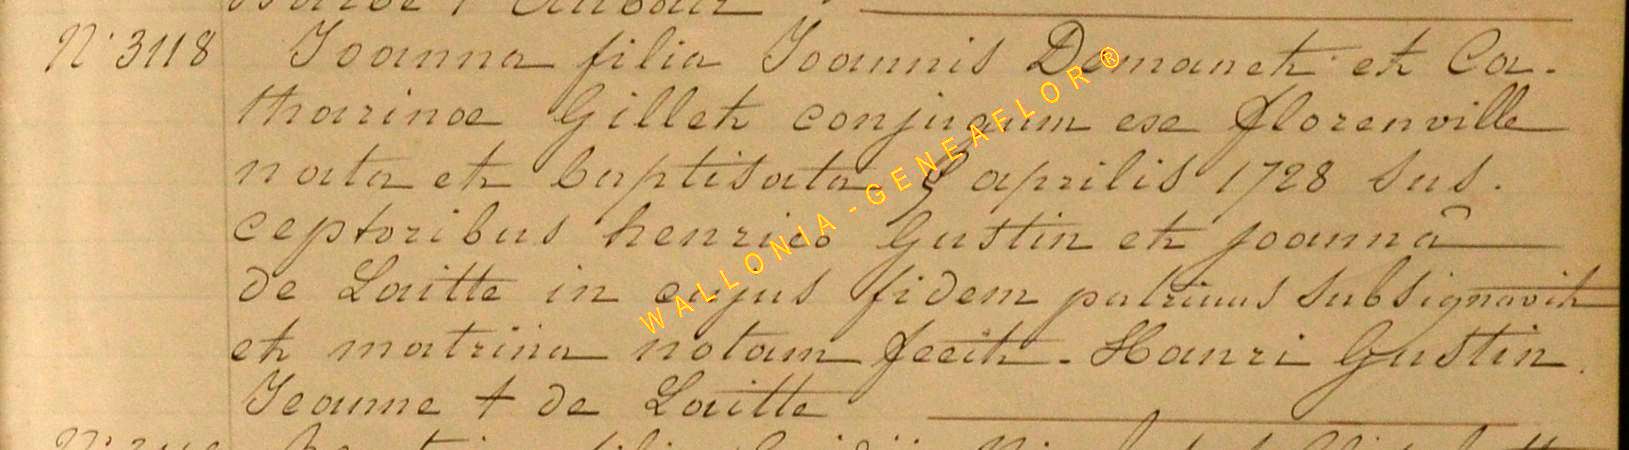 N° 3118 Joanna filia Joannis Demanet et Ca-
tharinae Gillet conjugum ex florenville
nata et baptisata aprilis 1728 sus-
ceptoribus henrico Gustin et joannâ
de Laitte in cujus fidem patrinus subsignavit
et matrina notam fecit - Hanri Gustin
Jeanne + de Laitte
WALLONIA-GENEAFLOR®